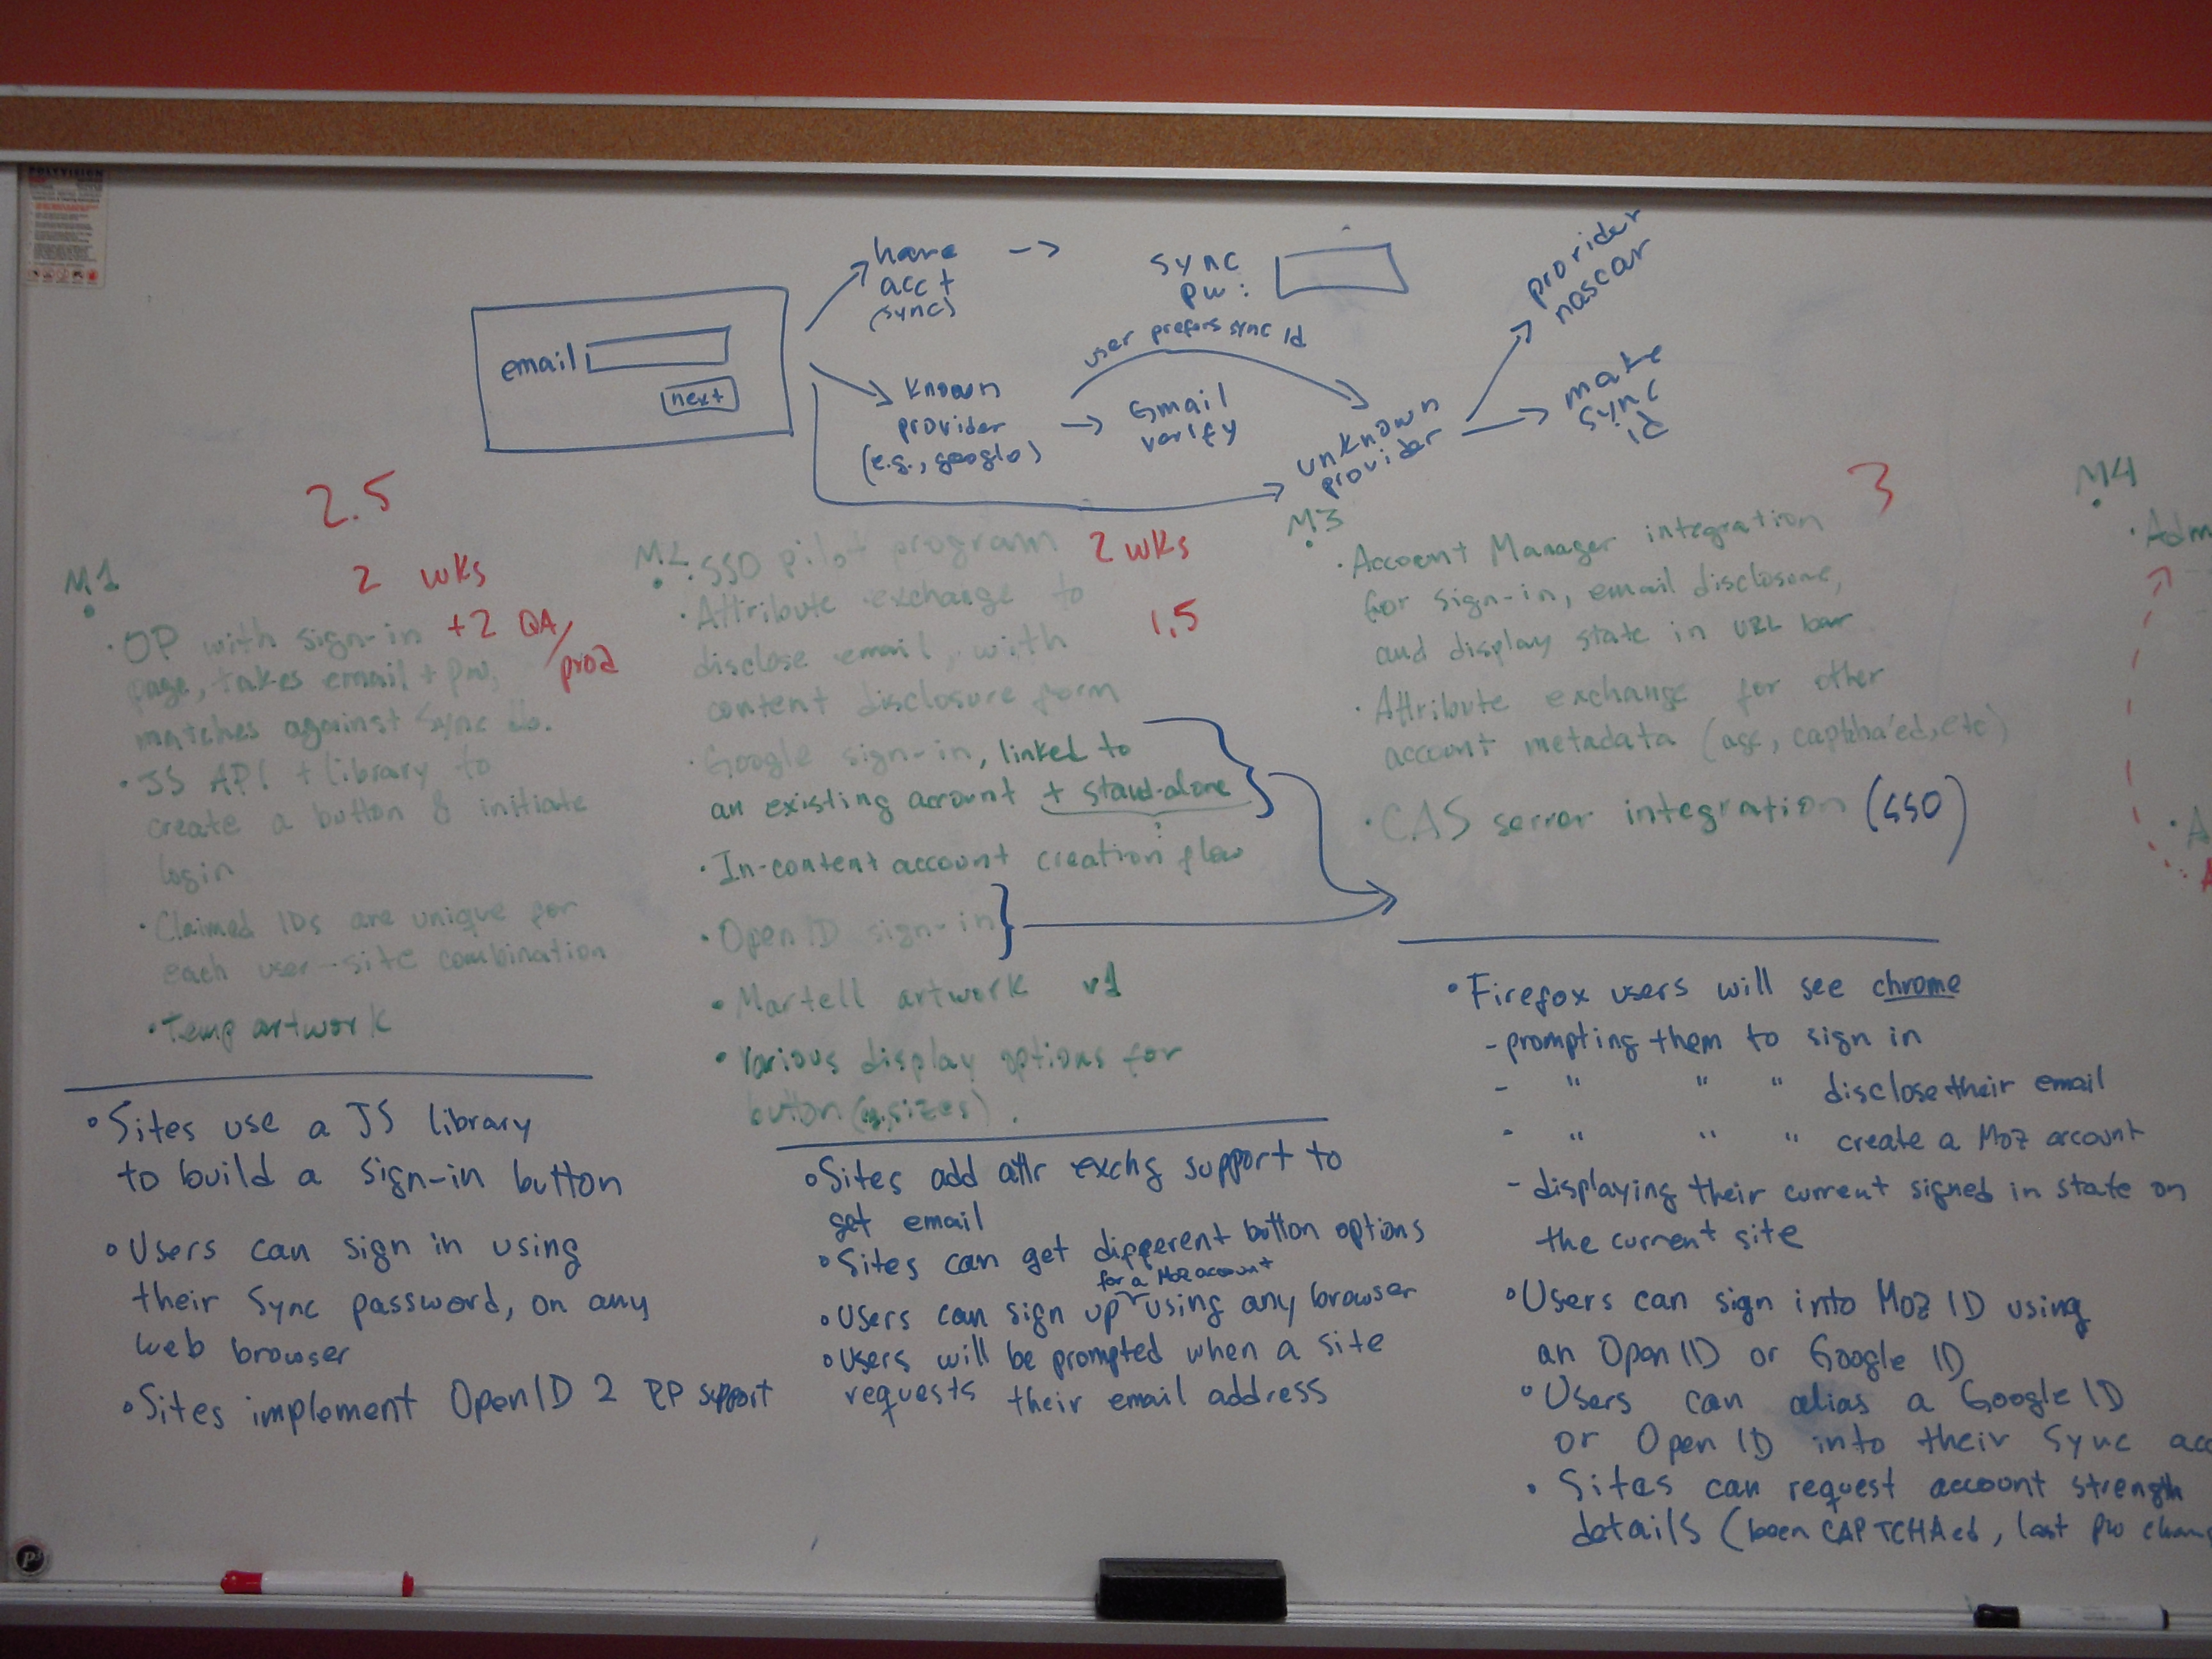 POLYVISION
have
acct
(sync)
->
sync
pw:
provider
nascar
email
next
user prefers sync id
known
provider
(e.g., google)
Gmail
verify
unknown
provider
make
sync
id
2.5
M1
2 wks
• OP with sign-in +2 QA/
prod
page, takes email + pw,
matches against Sync db.
• JS API + library to
create a button & initiate
login
• Claimed IDs are unique for
each user-site combination
• Temp artwork
• Sites use a JS library
to build a sign-in button
• Users can sign in using
their Sync password, on any
web browser
• Sites implement OpenID 2 RP support
M2
• SSO pilot program 2 wks
• Attribute exchange to
1.5
disclose email, with
content disclosure form
• Google sign-in, linked to
an existing account + stand-alone
• In-content account creation flow
• OpenID sign-in
• Martell artwork v1
• Various display options for
button (e.g. sizes).
• Sites add attr exchg support to
get email
• Sites can get different button options
for a Moz account
• Users can sign up using any browser
• Users will be prompted when a site
requests their email address
M3
3
• Account Manager integration
for sign-in, email disclosure,
and display state in URL bar
• Attribute exchange for other
account metadata (age, captcha'ed, etc)
• CAS server integration (SSO)
• Firefox users will see chrome
- prompting them to sign in
- " " " disclose their email
- " " " create a Moz account
- displaying their current signed in state on
the current site
• Users can sign into Moz ID using
an OpenID or Google ID
• Users can alias a Google ID
or OpenID into their Sync acc
• Sites can request account strength
details (been CAPTCHAed, last pw chang
M4
• Adm
• A
A